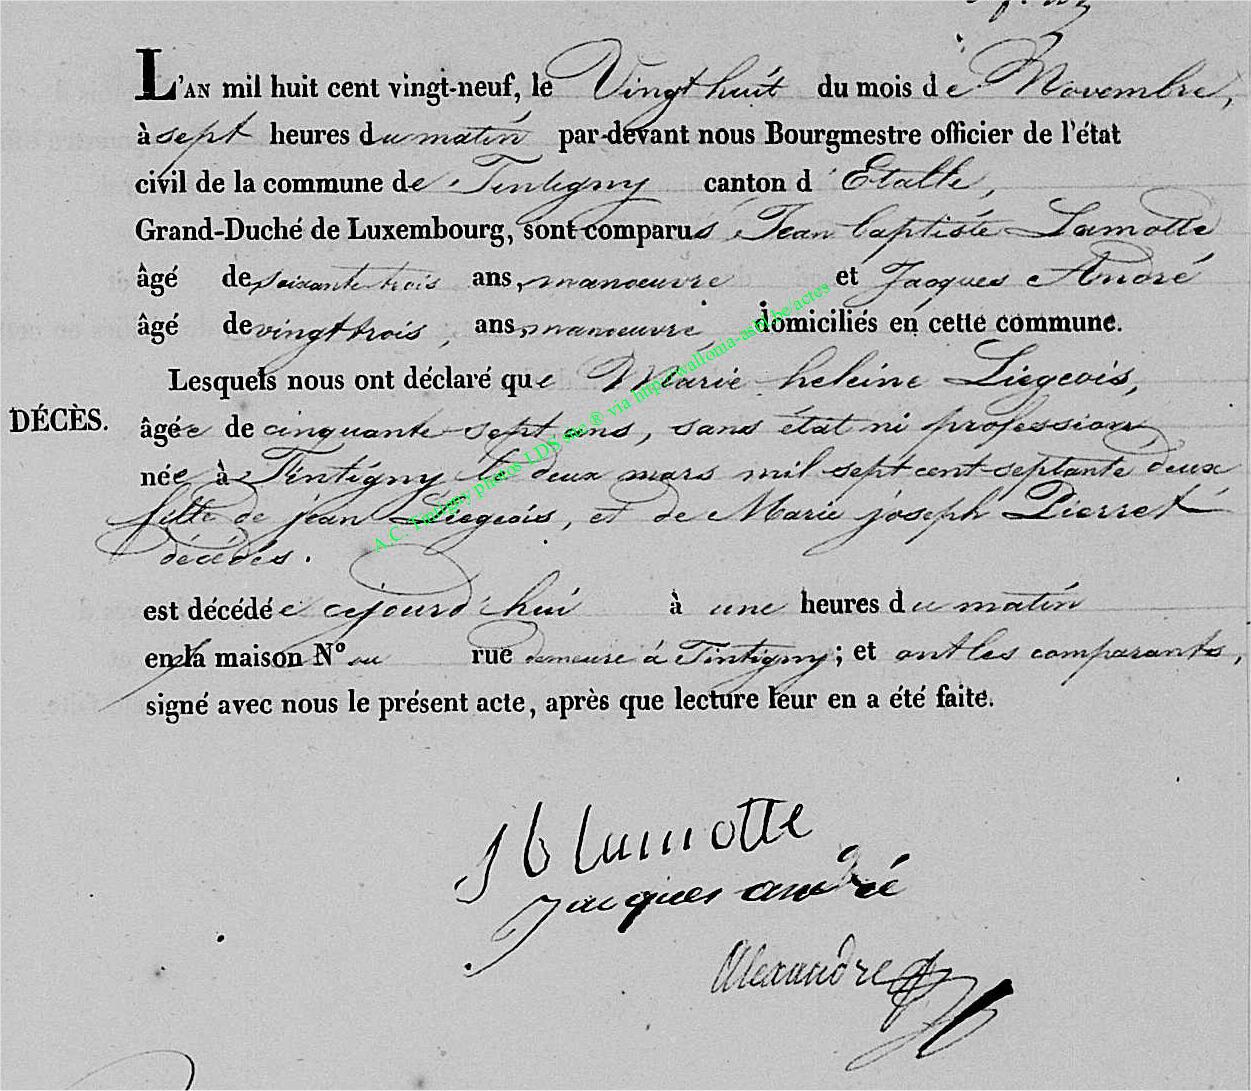 L'AN mil huit cent vingt-neuf, le Vingt huit du mois de Novembre,
à sept heures du matin par-devant nous Bourgmestre officier de l'état
civil de la commune de Tintigny canton d'Etalle,
Grand-Duché de Luxembourg, sont comparus Jean baptiste Lamotte
âgé de soixante trois ans, manoeuvre et Jacques André
âgé de vingt trois, ans, manoeuvre, domiciliés en cette commune.
Lesquels nous ont déclaré que Marie heleine Liegeois,
DÉCÈS.
âgée de cinquante-sept ans, sans état ni profession,
née à Tintigny le deux mars mil sept cent septante deux
fille de jean Liegeois, et de Marie joseph Pierret
décédés.
est décédée cejourd'hui à une heures du matin
en la maison N° ou rue demeure à Tintigny; et ont les comparants,
signé avec nous le présent acte, après que lecture leur en a été faite.
A.C. Tintigny photos LDS sne ® via http://wallonia-asbl.be/actes
J b lamotte
Jacques andré
Alexandre